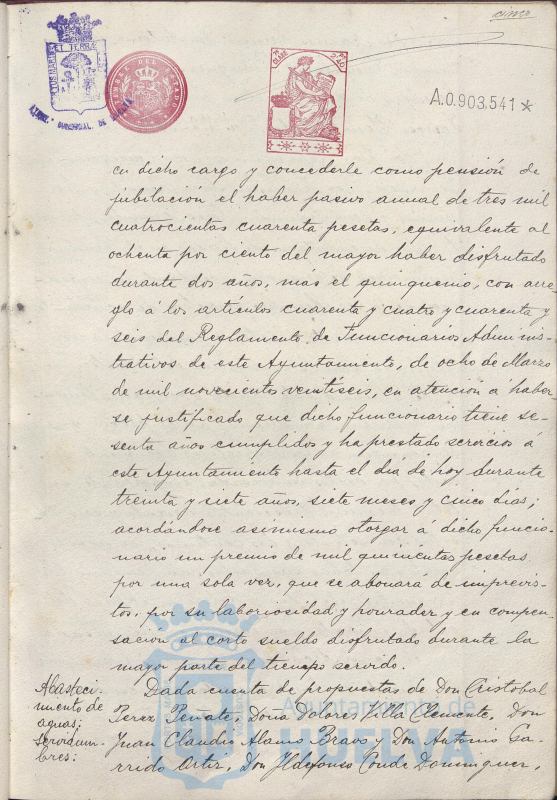 cinco
PORTUS MARIS ET TERRÆ CUSTODIA
TIMBRE DEL ESTADO
8ª CLASE
A.0.903,541 *
en dicho cargo y concederle como pensión de
jubilación el haber pasivo anual de tres mil
cuatrocientas cuarenta pesetas, equivalente al
ochenta por ciento del mayor haber disfrutado
durante dos años, más el quinquenio, con arre-
glo á los artículos cuarenta y cuatro y cuarenta y
seis del Reglamento de Funcionarios Adminis-
trativos de este Ayuntamiento, de ocho de Marzo
de mil novecientos veintiséis, en atención á haber-
se justificado que dicho funcionario tiene se-
senta años cumplidos y ha prestado servicios á
este Ayuntamiento hasta el día de hoy durante
treinta y siete años, siete meses y cinco días;
acordándose asimismo otorgar á dicho funcio-
nario un premio de mil quinientas pesetas
por una sola vez, que se abonará de imprevis-
tos, por su laboriosidad y honradez y en compen-
sación al corto sueldo disfrutado durante la
mayor parte del tiempo servido.
Abasteci-
miento de
aguas;
servidum-
bres:
Dada cuenta de propuestas de Don Cristobal
Perez Peñate, Doña Dolores Villa Clemente, Don
Juan Claudio Alamo Bravo, Don Antonio Ga-
rrido Ortiz, Don Ildefonso Conde Dominguez,
Ayuntamiento de
HUELVA